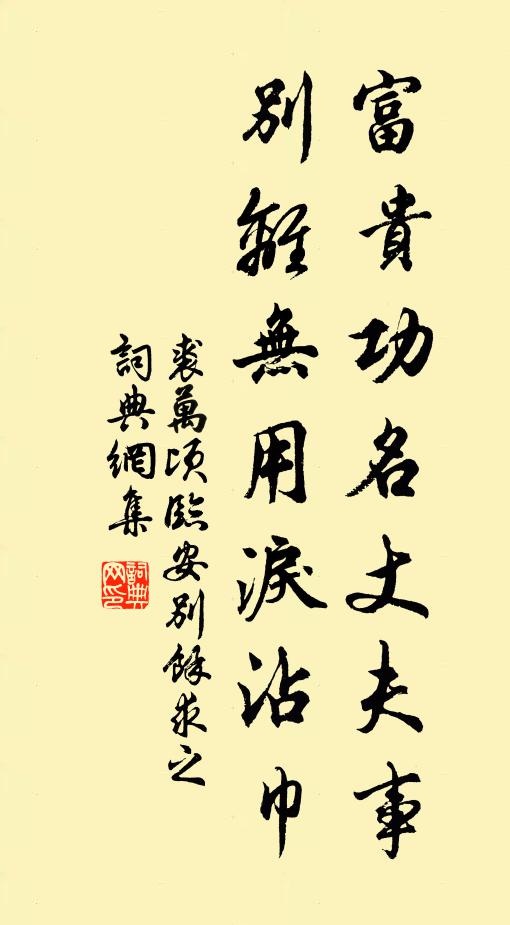 富貴功名丈夫事
別離無用淚沾巾
裘萬頃臨安別餘求之
詞典網集
詞典网印